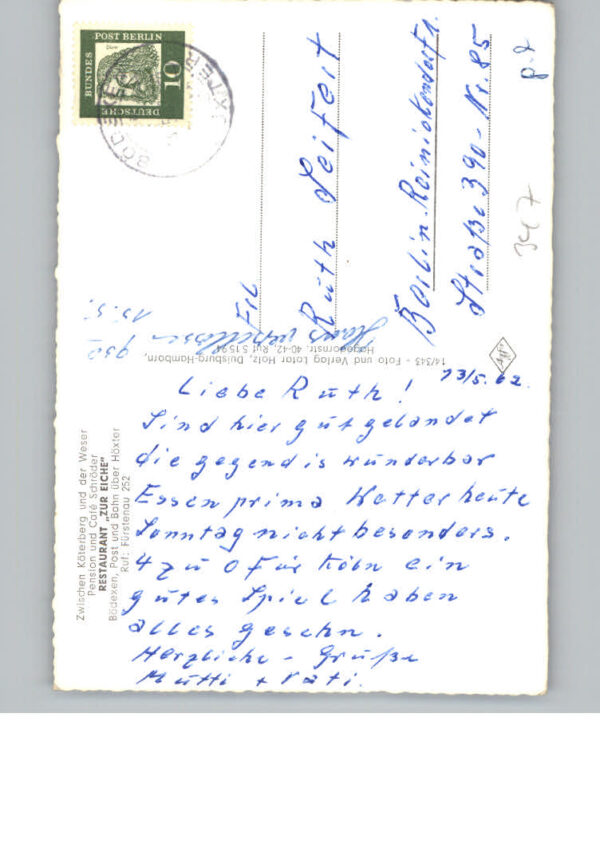 DEUTSCHE
BUNDES
POST BERLIN
10
BÖDEXEN
Frl
Ruth Seifert
Berlin-Reinickendorf 1.
Straße 390 - Nr. 85
3417
Haus verschlossen 9 50
15.5.
14/343 - Foto und Verlag Lotar Holz, Duisburg-Hamborn,
Hagedornstr. 40-42, Ruf 5 15 94
Zwischen Köterberg und der Weser
Pension und Café Schröder
RESTAURANT „ZUR EICHE"
Bödexen, Post und Bahn über Höxter
Ruf: Fürstenau 252
13/5. 62
Liebe Ruth!
Sind hier gut gelandet
die gegend is wunderbar
Essen prima Wetter heute
Sonntag nicht besonders.
4 zu 0 für Köln ein
gutes Spiel haben
alles gesehn.
Herzliche - Grüße
Mutti + Vati.